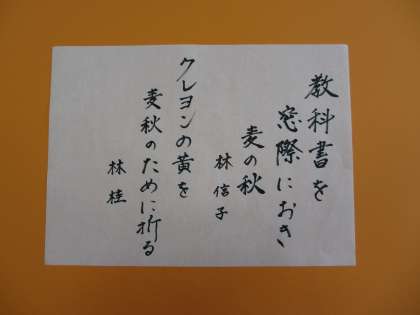 教科書を
窓際におき
麦の秋
林信子
クレヨンの黄を
麦秋のために折る
林桂